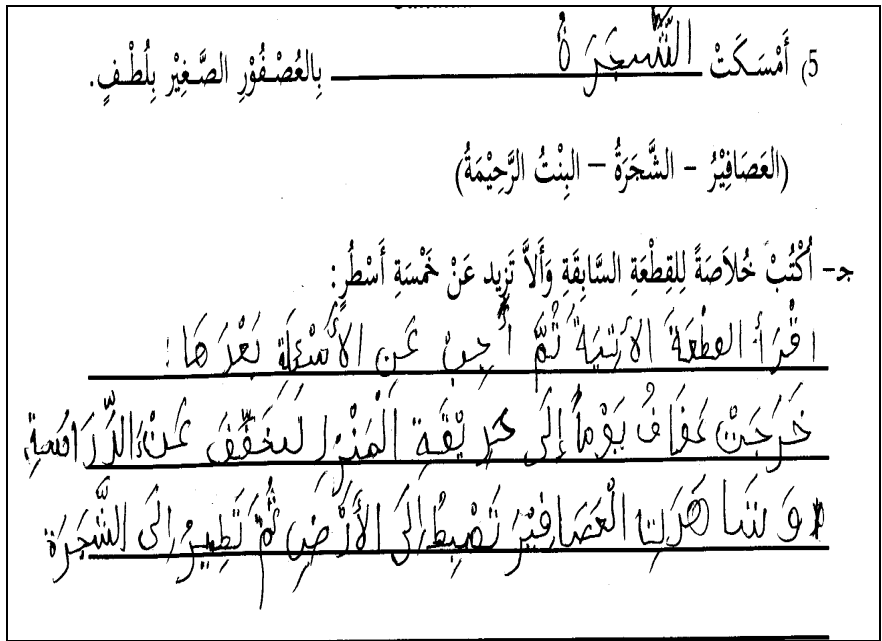 5) أَمْسَكَتْ الشَّجَرَةُ بِالعُصْفُوْرِ الصَّغِيْرِ بِلُطْفٍ.
(العَصَافِيْرُ - الشَّجَرَةُ - البِنْتُ الرَّحِيْمَةُ)
جـ- اُكْتُبْ خُلاَصَةً لِلقِطْعَةِ السَّابِقَةِ وَأَلاَّ تَزِيد عَنْ خَمْسَةِ أَسْطُرٍ:
اقْرَأ القطْعَةَ الأَتِيَةَ ثُمَّ أَجِبْ عَنِ الأَسْئِلَةِ بَعْدَ هَا:
خَرَجَتْ عَفَافُ يَوْماً إِلَى حَدِيْقَةِ الْمَنْزِلِ لتُخَفِّفَ عَنْ الدِّرَاسَةِ.
وَ شَا هَدَتِ الْعَصَافِيْرَ تَهْبِطُ إِلَى الأَرْضِ ثُمَّ تَطِيرُ إِلَى الشَّجَرَةِ